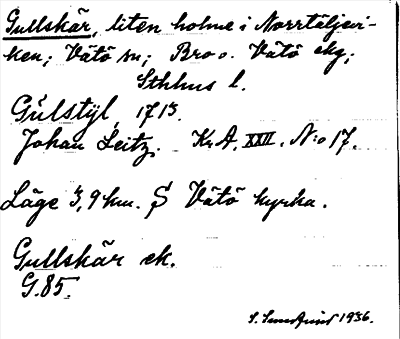 Gullskär, liten holme i Norrtäljevi-
ken; Vätö sn; Bro o. Vätö skg;
Sthlms l.
Gulstyl, 1713.
Johan Leitz. K.A. XXII. N:o 17.
Läge 3,9 km. S Vätö kyrka.
Gullskär ek.
G.85.
S. 1936.